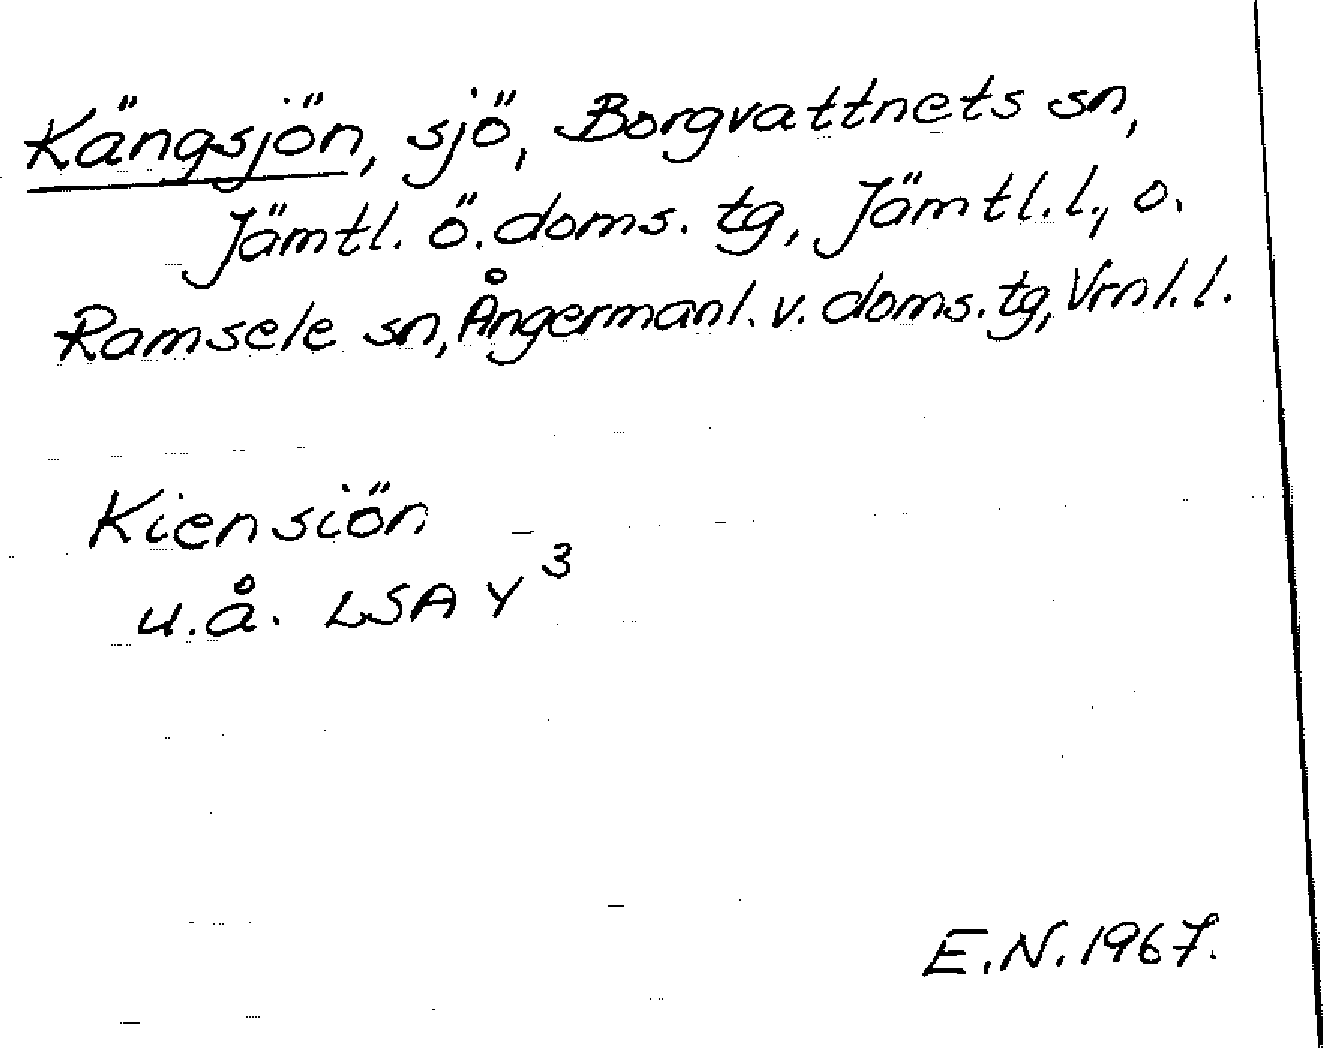 Kängsjön, sjö, Borgvattnets sn,
Jämtl. ö. doms. tg, Jämtl. l., o.
Ramsele sn, Ångermanl. v. doms. tg, Vrnl. l.
Kiensiön
u.å. LSA Y³
E.N. 1967.